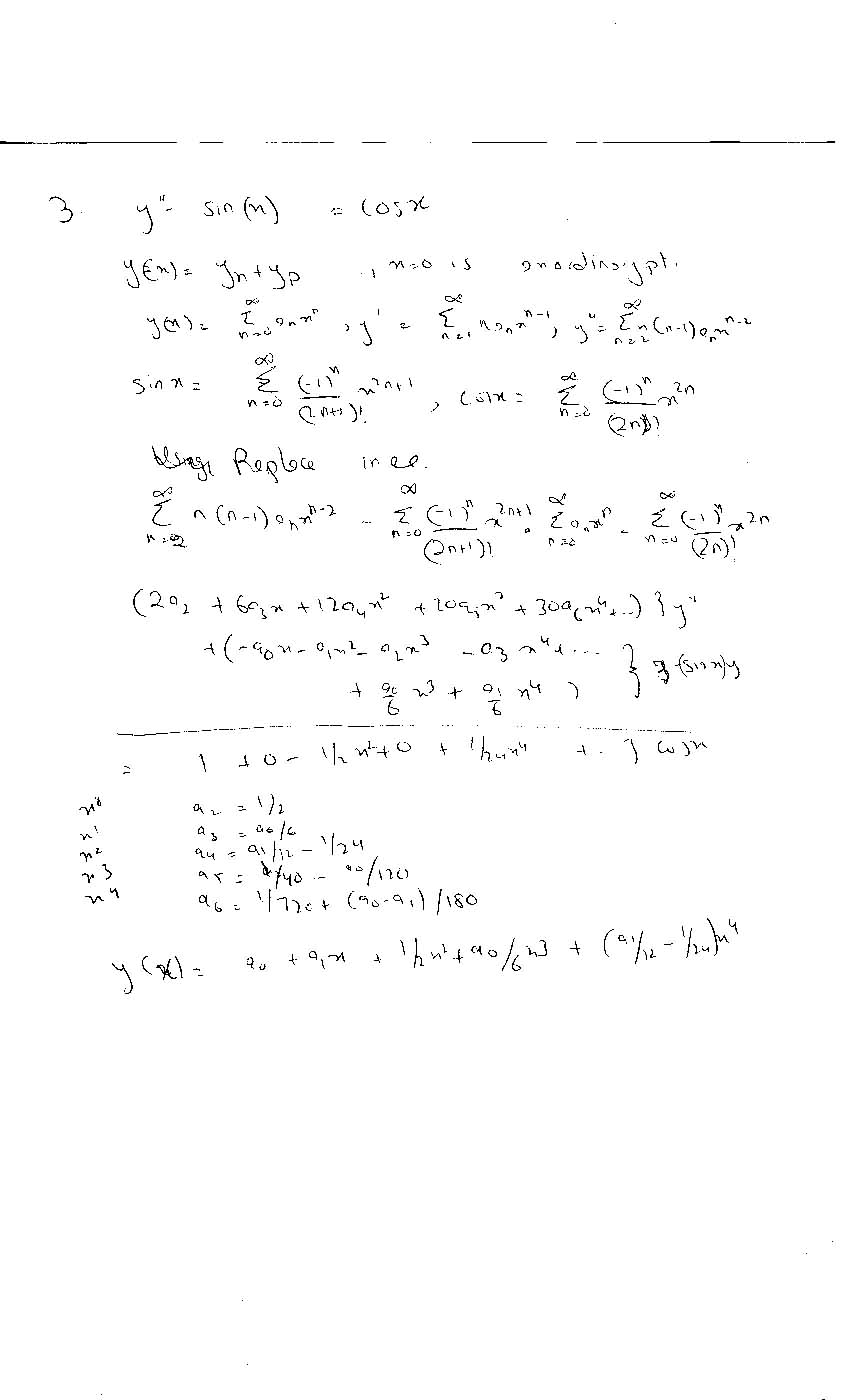 3. y'' - sin(x) = cosx
y(x) = yₕ + yₚ , x=0 is
y(x) = ∑_{n=0}^{∞} aₙxⁿ , y' = ∑_{n=1}^{∞} n aₙxⁿ⁻¹, y'' = ∑_{n=2}^{∞} n(n-1)aₙxⁿ⁻²
sin x = ∑_{n=0}^{∞} (-1)ⁿ/(2n+1)! x²ⁿ⁺¹ , cosx = ∑_{n=0}^{∞} (-1)ⁿ/(2n)! x²ⁿ
Replace in
∑_{n=2}^{∞} n(n-1)aₙxⁿ⁻² - ∑_{n=0}^{∞} (-1)ⁿ/(2n+1)! x²ⁿ⁺¹ · ∑_{n=0}^{∞} aₙxⁿ - ∑_{n=0}^{∞} (-1)ⁿ/(2n)! x²ⁿ
(2a₂ + 6a₃x + 12a₄x² + 20a₅x³ + 30a₆x⁴+..) } y''
+(-a₀x - a₁x² - a₂x³ - a₃x⁴+...
+ a₀/6 x³ + a₁/6 x⁴ ) } (sinx)y
= 1 + 0 - 1/2x² + 0 + 1/24x⁴ + . } cosx
x⁰ a₂ = 1/2
x¹ a₃ = a₀/6
x² a₄ = a₁/12 - 1/24
x³ a₅ = 1/40 - a₀/120
x⁴ a₆ = 1/720 + (a₀-a₁)/180
y(x) = a₀ + a₁x + 1/2x² + a₀/6x³ + (a₁/12 - 1/24)x⁴